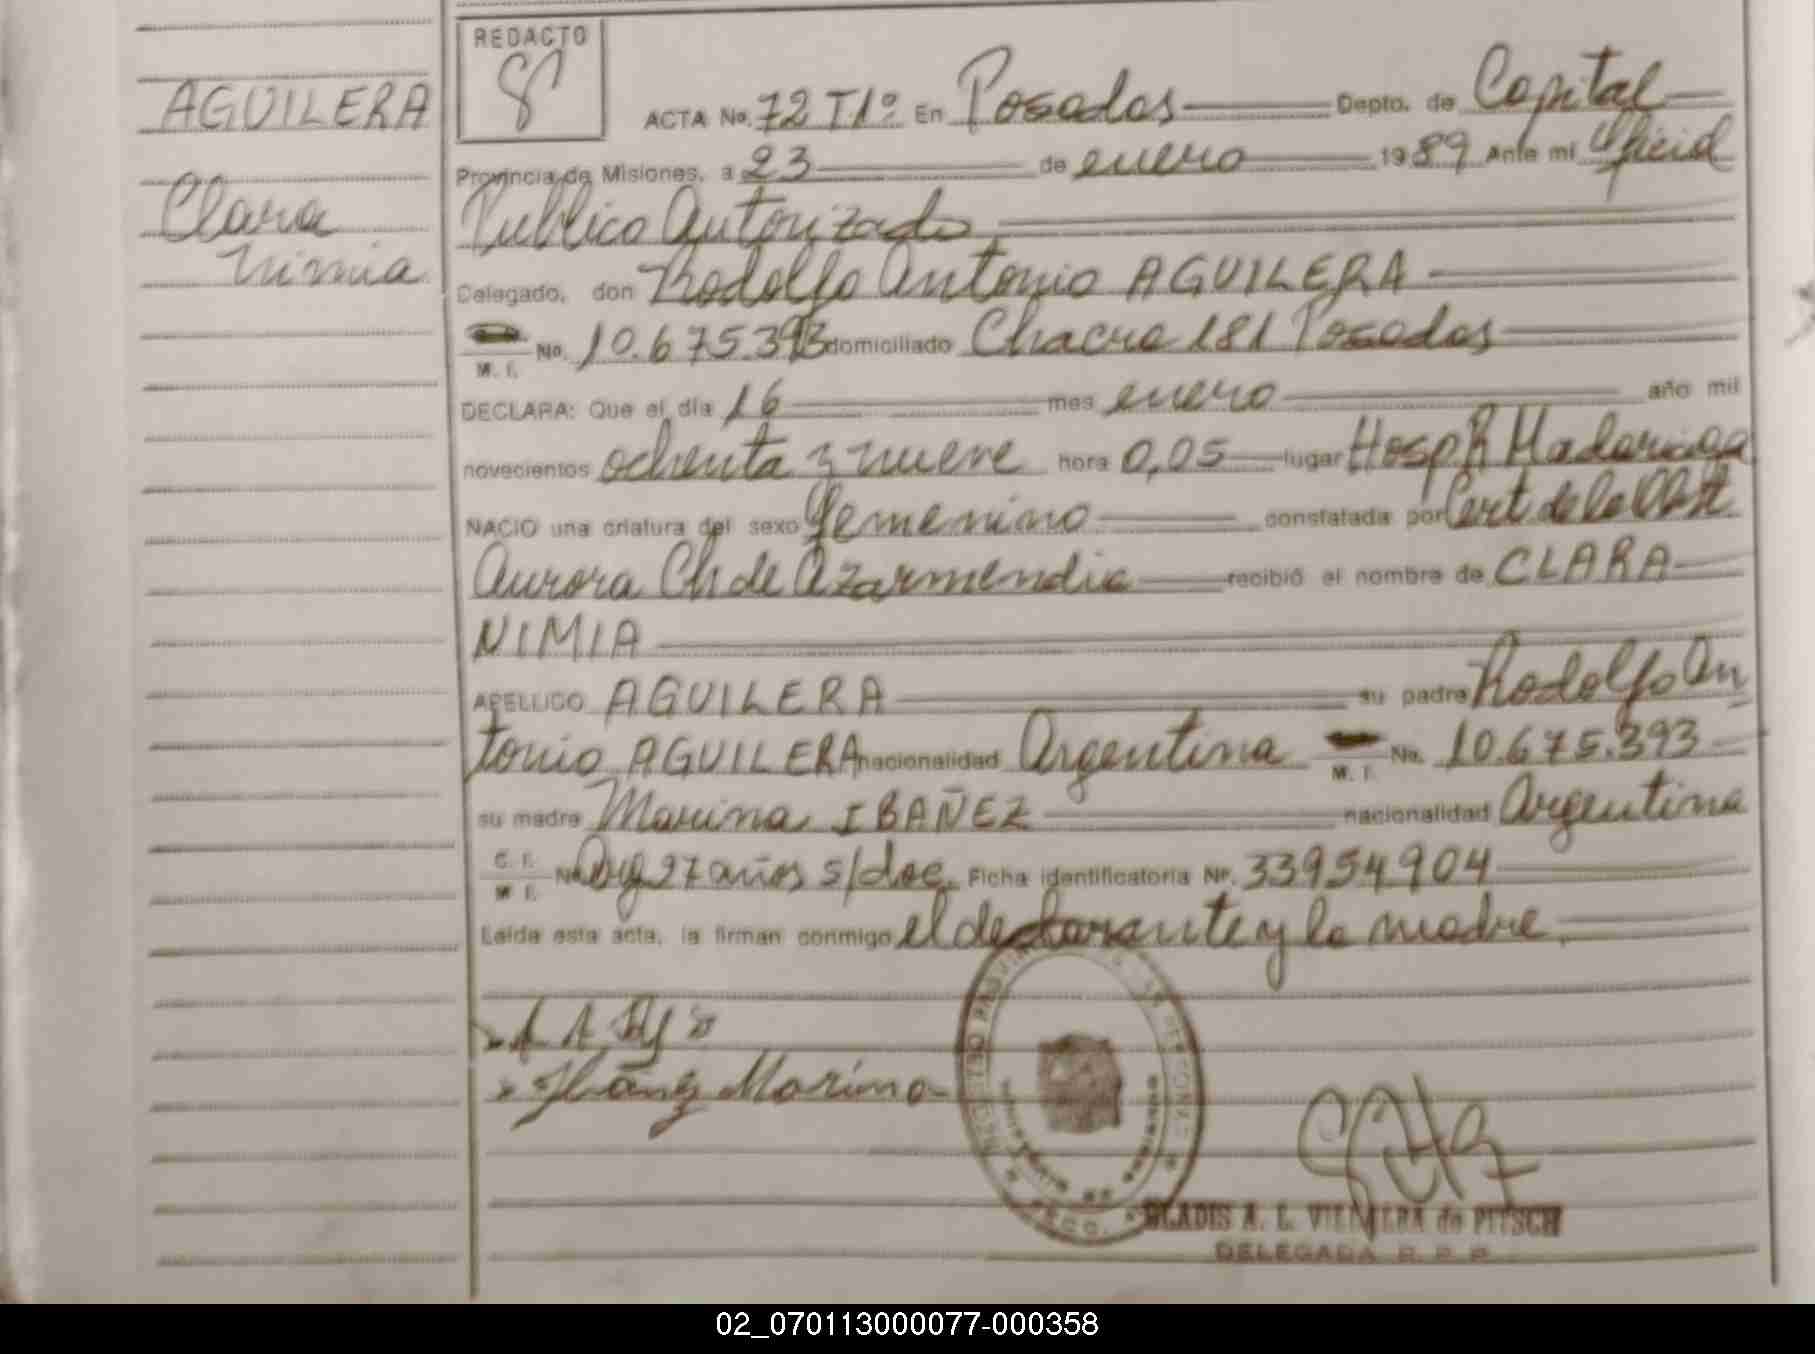 AGUILERA
Clara
Nimia
REDACTO
ACTA No. 72 T.1º En Posadas Depto. de Capital
Provincia de Misiones, a 23 de enero 1989 Ante mi Oficial
Publico Autorizado
Delegado, don Rodolfo Antonio AGUILERA
M. I. No. 10.675.393 domiciliado Chacra 181 Posadas
DECLARA: Que el día 16 mes enero año mil
novecientos ochenta y nueve hora 0,05 lugar Hosp R Madariaga
NACIO una criatura del sexo femenino constatada por Cert. de la Obst
Aurora Ch de Azarmendia recibió el nombre de CLARA
NIMIA
APELLIDO AGUILERA su padre Rodolfo An
tonio AGUILERA nacionalidad Argentina M. I. No. 10.675.393
su madre Marina IBAÑEZ nacionalidad Argentina
C. I. M. I. No 27 años s/doc. Ficha identificatoria Nº. 33954904
Leída esta acta, la firman conmigo el declarante y la madre.
Ibáñez Marina
GLADIS A. L. VILLALBA de PITSCH
DELEGADA R. P. P.
02_070113000077-000358